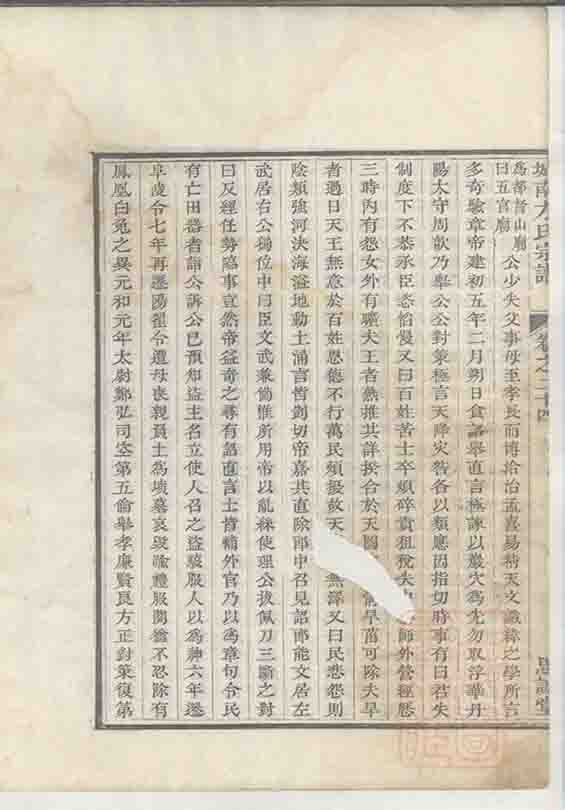 方氏宗譜 卷之二十四
為都督山廟
曰五官廟
公少失父事母至孝長而博洽治孟喜易精天文讖緯之學所言
多奇驗章帝建初五年二月朔日食詔舉直言極諫以巖穴為先勿取浮華丹
陽太守周歆乃舉公公對策極言天降灾咎各以類應因指切時事有曰君失
制度下不恭承臣恣怊慢又曰百姓苦士卒煩碎責租稅失 師外營經歷
三時內有怨女外有曠夫王者熟推其詳揆合於天圖 旱菑可除夫旱
者過日天王無意於百姓恩德不行萬民煩擾故天 無澤又曰民悲怨則
陰類強河決海溢地動土涌言皆剴切帝嘉其直除郎中召見詔郎能文居左
武居右公獨位中曰臣文武兼備惟所用帝以亂絲使理公拔佩刀三斷之對
曰反經任勢臨事宜然帝益奇之尋有詔直言士肯補外官乃以為章句令民
有亡田器者詣公訴公已預知盜主名立使人召之盜駭服人以為神六年遷
阜歲令七年再遷陽翟令遭母喪親負土為墳墓哀毀踰禮服闋猶不忍除有
鳳凰白兔之異元和元年太尉鄭弘司空第五倫舉孝廉賢良方正對策復第